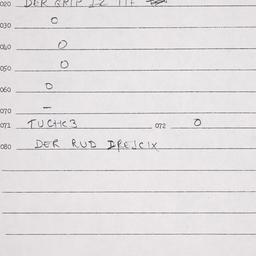 020 DER GRIP IZ TIT
030 O
040 O
050 O
060 O
070 –
071 TUCHK3 072 O
080 DER RUD DREJCIX